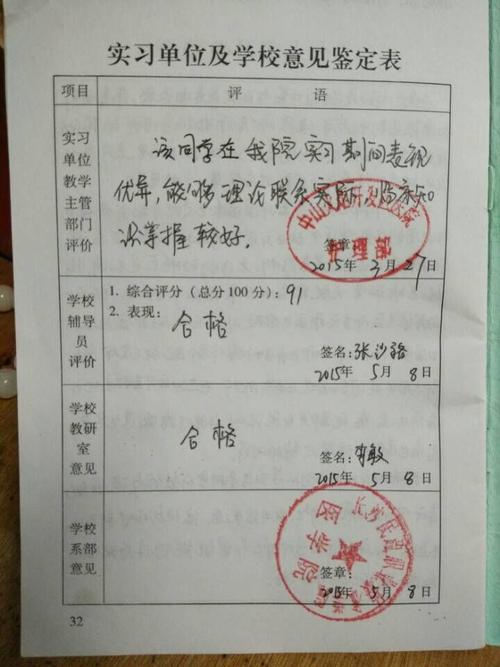 实习单位及学校意见鉴定表
项目 评语
实习单位教学主管部门评价
该同学在我院实习期间表现
优异,能够理论联系实际,临床知
识掌握较好。
签章:
护理部
2015年3月27日
学校辅导员评价
1. 综合评分(总分100分):91
2. 表现:合格
签名:
2015年5月8日
学校教研室意见
合格
签名:李敏
2015年5月8日
学校系部意见
医学院
签章:
2015年5月8日
32